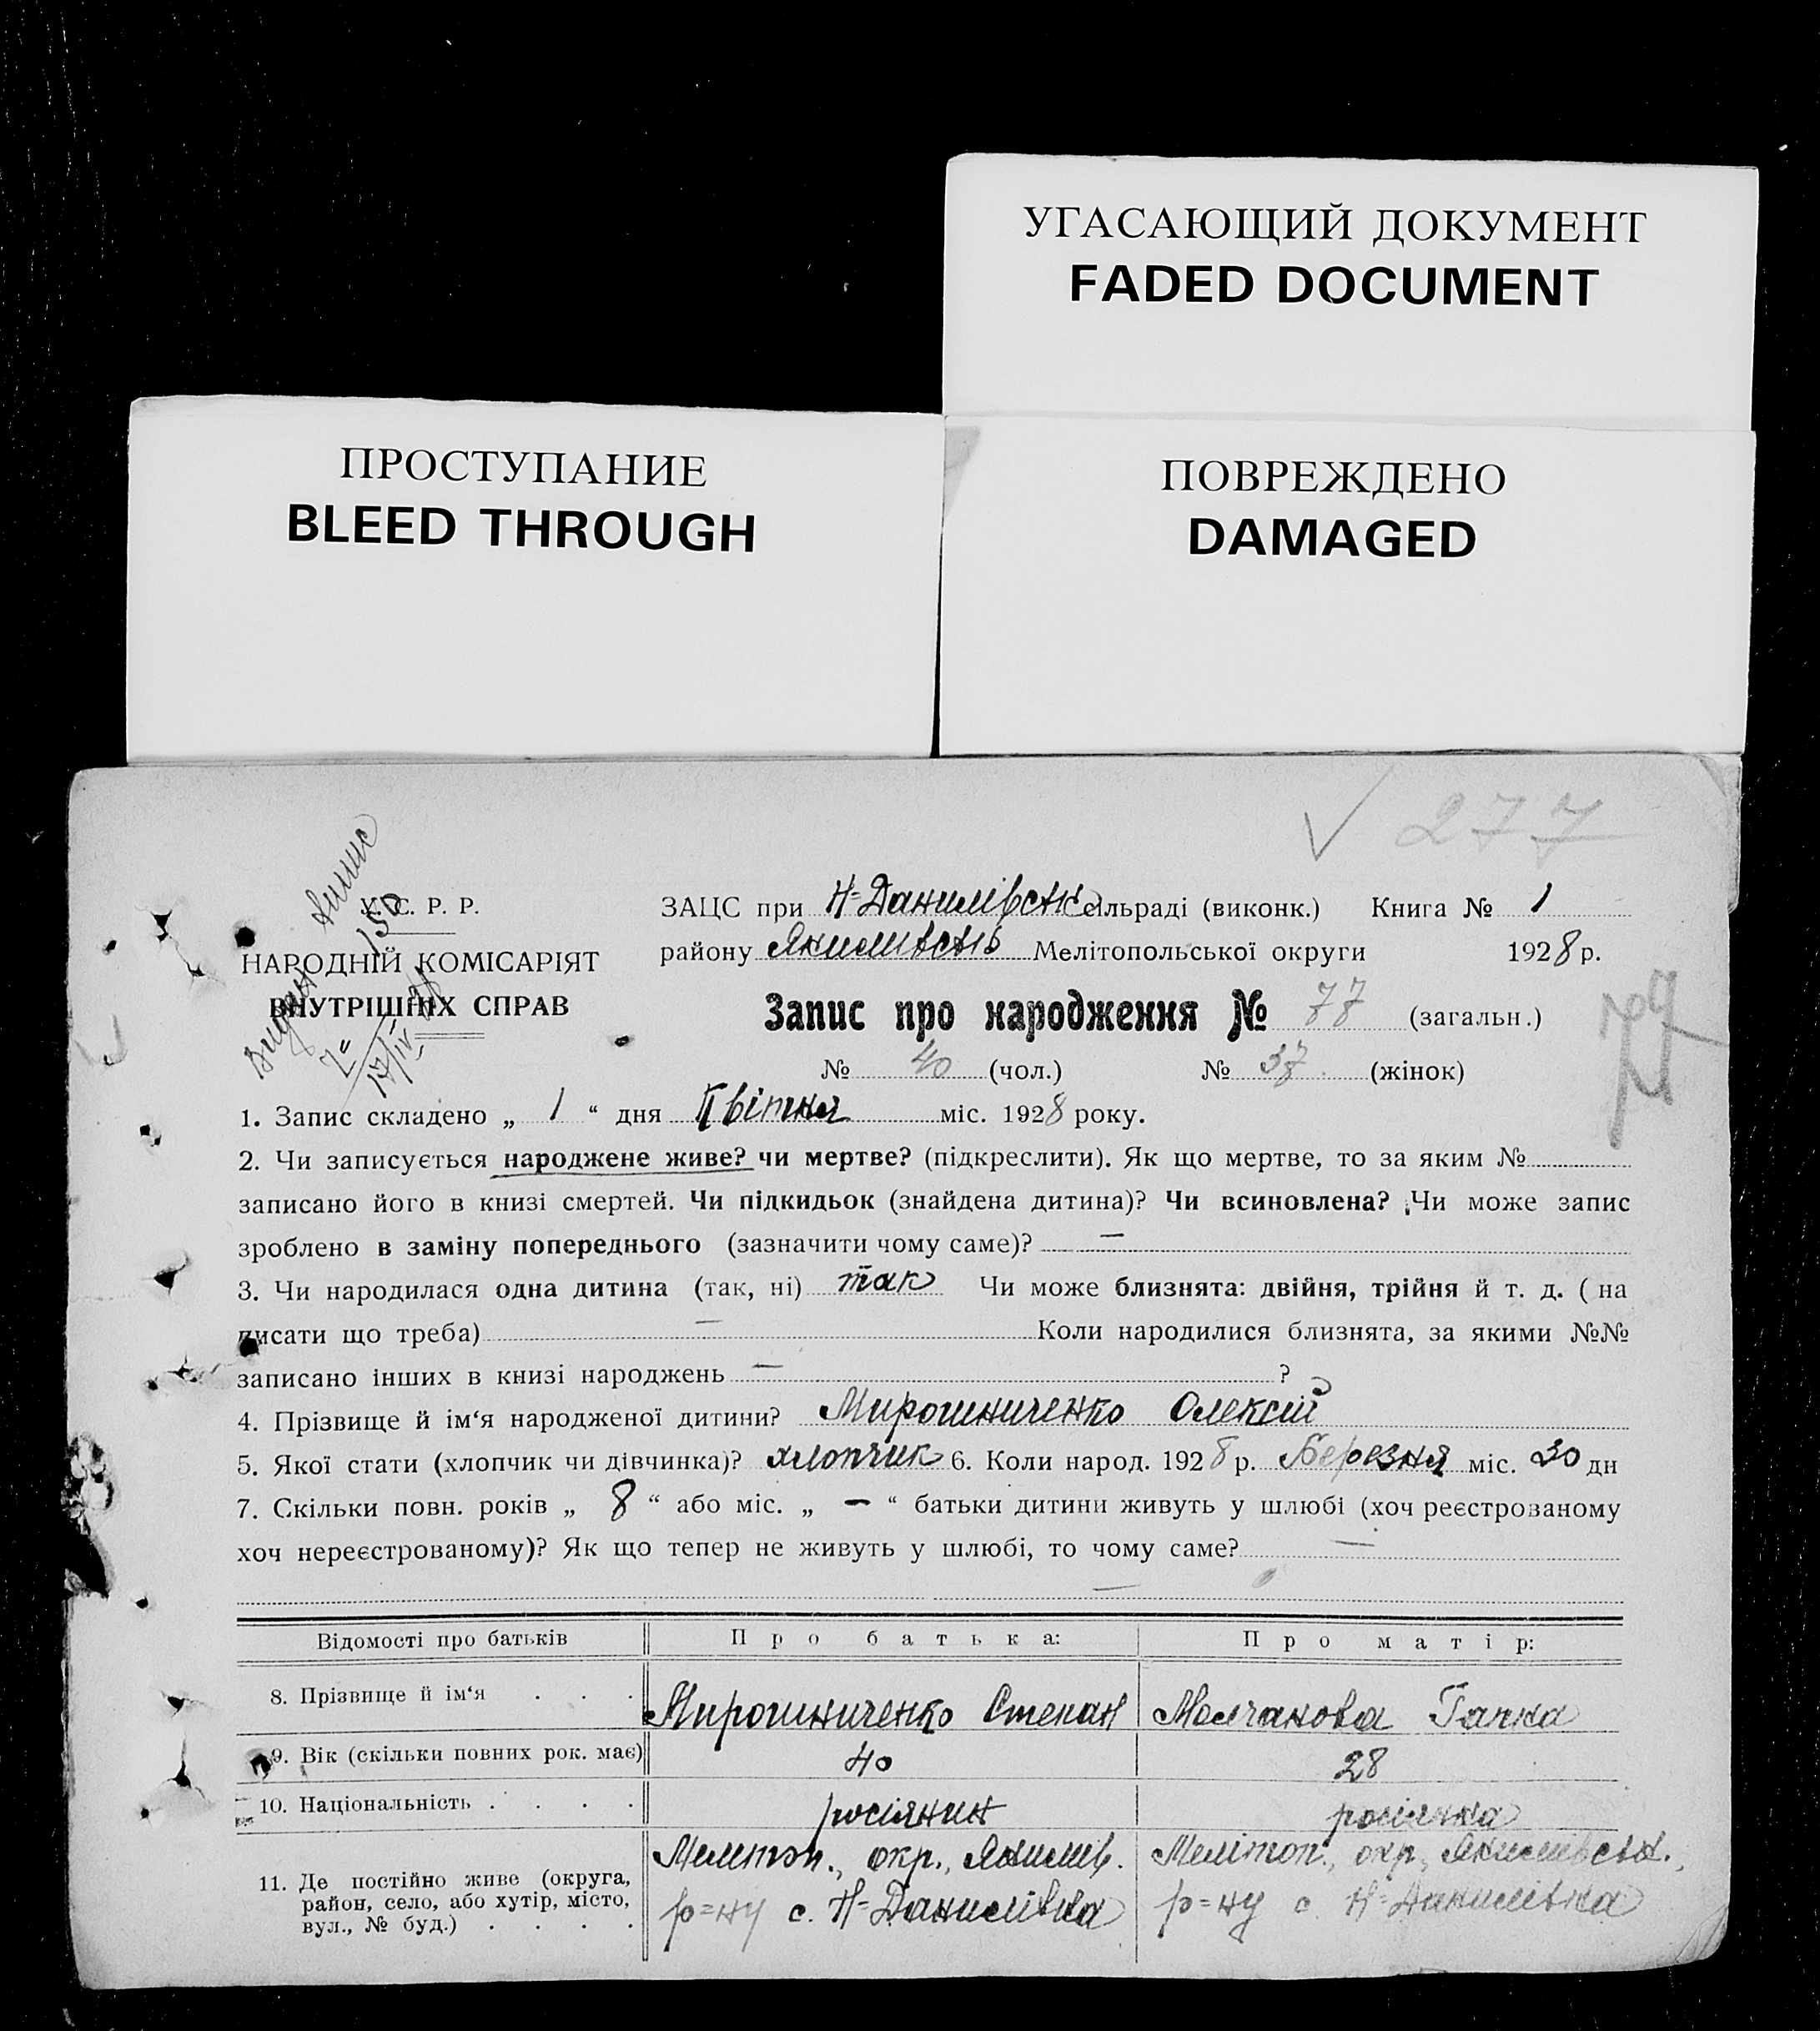 УГАСАЮЩИЙ ДОКУМЕНТ
FADED DOCUMENT
ПРОСТУПАНИЕ
BLEED THROUGH
ПОВРЕЖДЕНО
DAMAGED
277
У. С. Р. Р.
НАРОДНІЙ КОМІСАРІЯТ
ВНУТРІШНІХ СПРАВ
ЗАЦС при Н-Данилівськ. сільраді (виконк.) Книга № 1
району Якимівськ Мелітопольської округи 1928 р.
Запис про народження № 77 (загальн.)
№ 40 (чол.) № 37 (жінок)
1. Запис складено „ 1 “ дня Квітня міс. 1928 року.
2. Чи записується народжене живе? чи мертве? (підкреслити). Як що мертве, то за яким №
записано його в книзі смертей. Чи підкидьок (знайдена дитина)? Чи всиновлена? Чи може запис
зроблено в заміну попереднього (зазначити чому саме)? —
3. Чи народилася одна дитина (так, ні) так Чи може близнята: двійня, трійня й т. д. ( на
писати що треба) — Коли народилися близнята, за якими №№
записано інших в книзі народжень — ?
4. Прізвище й ім‘я народженої дитини? Мирошниченко Олексій
5. Якої стати (хлопчик чи дівчинка)? хлопчик 6. Коли народ. 1928 р. Березня міс. 30 дн
7. Скільки повн. років „ 8 “ або міс. „ — “ батьки дитини живуть у шлюбі (хоч реєстрованому
хоч нереєстрованому)? Як що тепер не живуть у шлюбі, то чому саме? —
—
Відомості про батьків Про батька: Про матір:
8. Прізвище й ім‘я . . . Мирошниченко Степан Молчанова Гапка
9. Вік (скільки повних рок. має) 40 28
10. Національність . . . . росіянин росіянка
11. Де постійно живе (округа, район, село, або хутір, місто, вул., № буд.) . . . .
Мелітоп., окр., Якимів. р=ну с. Н-Данилівка
Мелітоп., окр., Якимівськ., р=ну с. Н-Данилівка